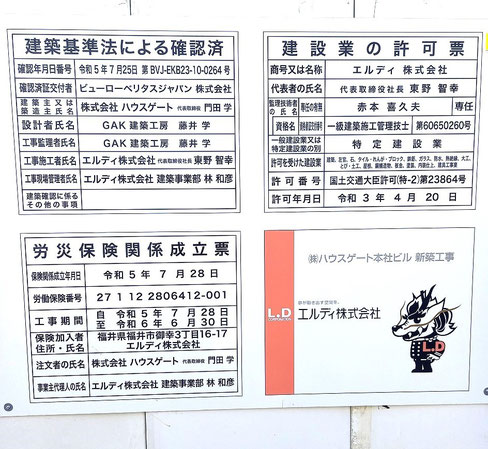 建築基準法による確認済
確認年月日番号 令和5年7月25日 第BVJ-EKB23-10-0264号
確認済証交付者 ビューローベリタスジャパン 株式会社
建築主又は築造主氏名 株式会社 ハウスゲート 代表取締役 門田 学
設計者氏名 GAK 建築工房 藤井 学
工事監理者氏名 GAK 建築工房 藤井 学
工事施工者氏名 エルディ株式会社 代表取締役社長 東野 智幸
工事現場管理者氏名 エルディ株式会社 建築事業部 林 和彦
建築確認に係る
その他の事項
建設業の許可票
商号又は名称 エルディ 株式会社
代表者の氏名 代表取締役社長 東野 智幸
監理技術者の氏名 専任の有無 赤本 喜久夫 専任
資格名 資格者証交付番号 一級建築施工管理技士 第60650260号
一般建設業又は特定建設業の別 特定建設業
許可を受けた建設業
許可番号 国土交通大臣許可(特-2)第23864号
許可年月日 令和3年4月20日
労災保険関係成立票
保険関係成立年月日 令和5年7月28日
労働保険番号 27 1 12 2806412-001
工事期間 自 令和5年7月28日
至 令和6年6月30日
保険加入者 福井県福井市御幸3丁目16-17
住所・氏名 エルディ株式会社
注文者の氏名 株式会社 ハウスゲート 代表取締役 門田 学
事業主代理人の氏名 エルディ株式会社 建築事業部 林 和彦
㈱ハウスゲート本社ビル 新築工事
夢が動き出す空間を、
L.D
CORPORATION
エルディ株式会社
L.D